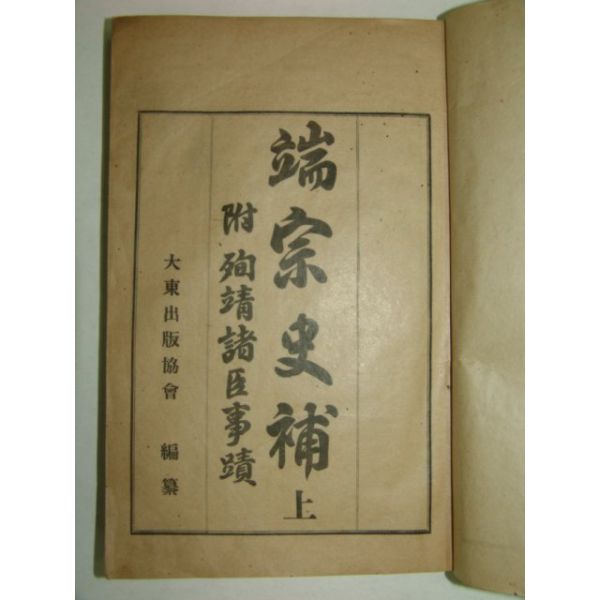 端宗史補上
附殉靖諸臣事蹟
大東出版協會 編纂